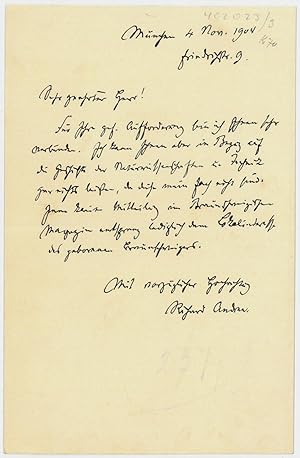 402023/3
München 4 Nov. 1904
Friedrichstr. 9.
Sehr geehrter Herr!
Für Ihre gef. Aufforderung bin ich Ihnen sehr
verbunden. Ich kann Ihnen aber in Bezug auf
die Geschichte der Naturwissenschaften u. Technik
gar nichts leisten, da dieses mein Fach nicht sind.
Jene kleine Mitteilung im Braunschweigischen
Magazin entsprang lediglich dem Lokalinteresse
des geborenen Braunschweigers.
Mit vorzüglicher Hochachtung
Richard Andree.